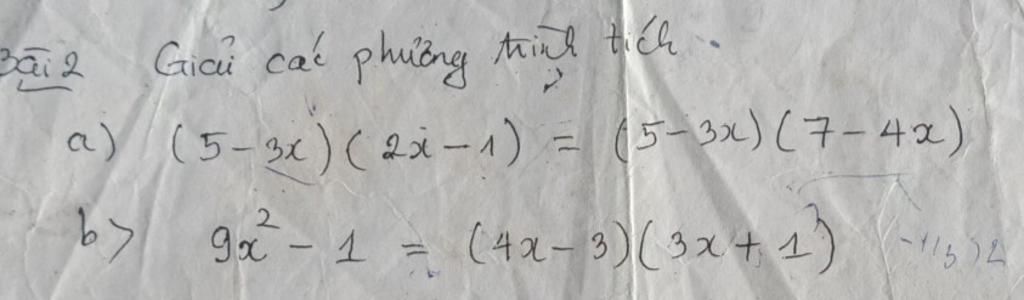 Bài 2 Giải các phương trình tích.
a) (5 - 3x)(2x - 1) = (5 - 3x)(7 - 4x)
b> 9x² - 1 = (4x - 3)(3x + 1)